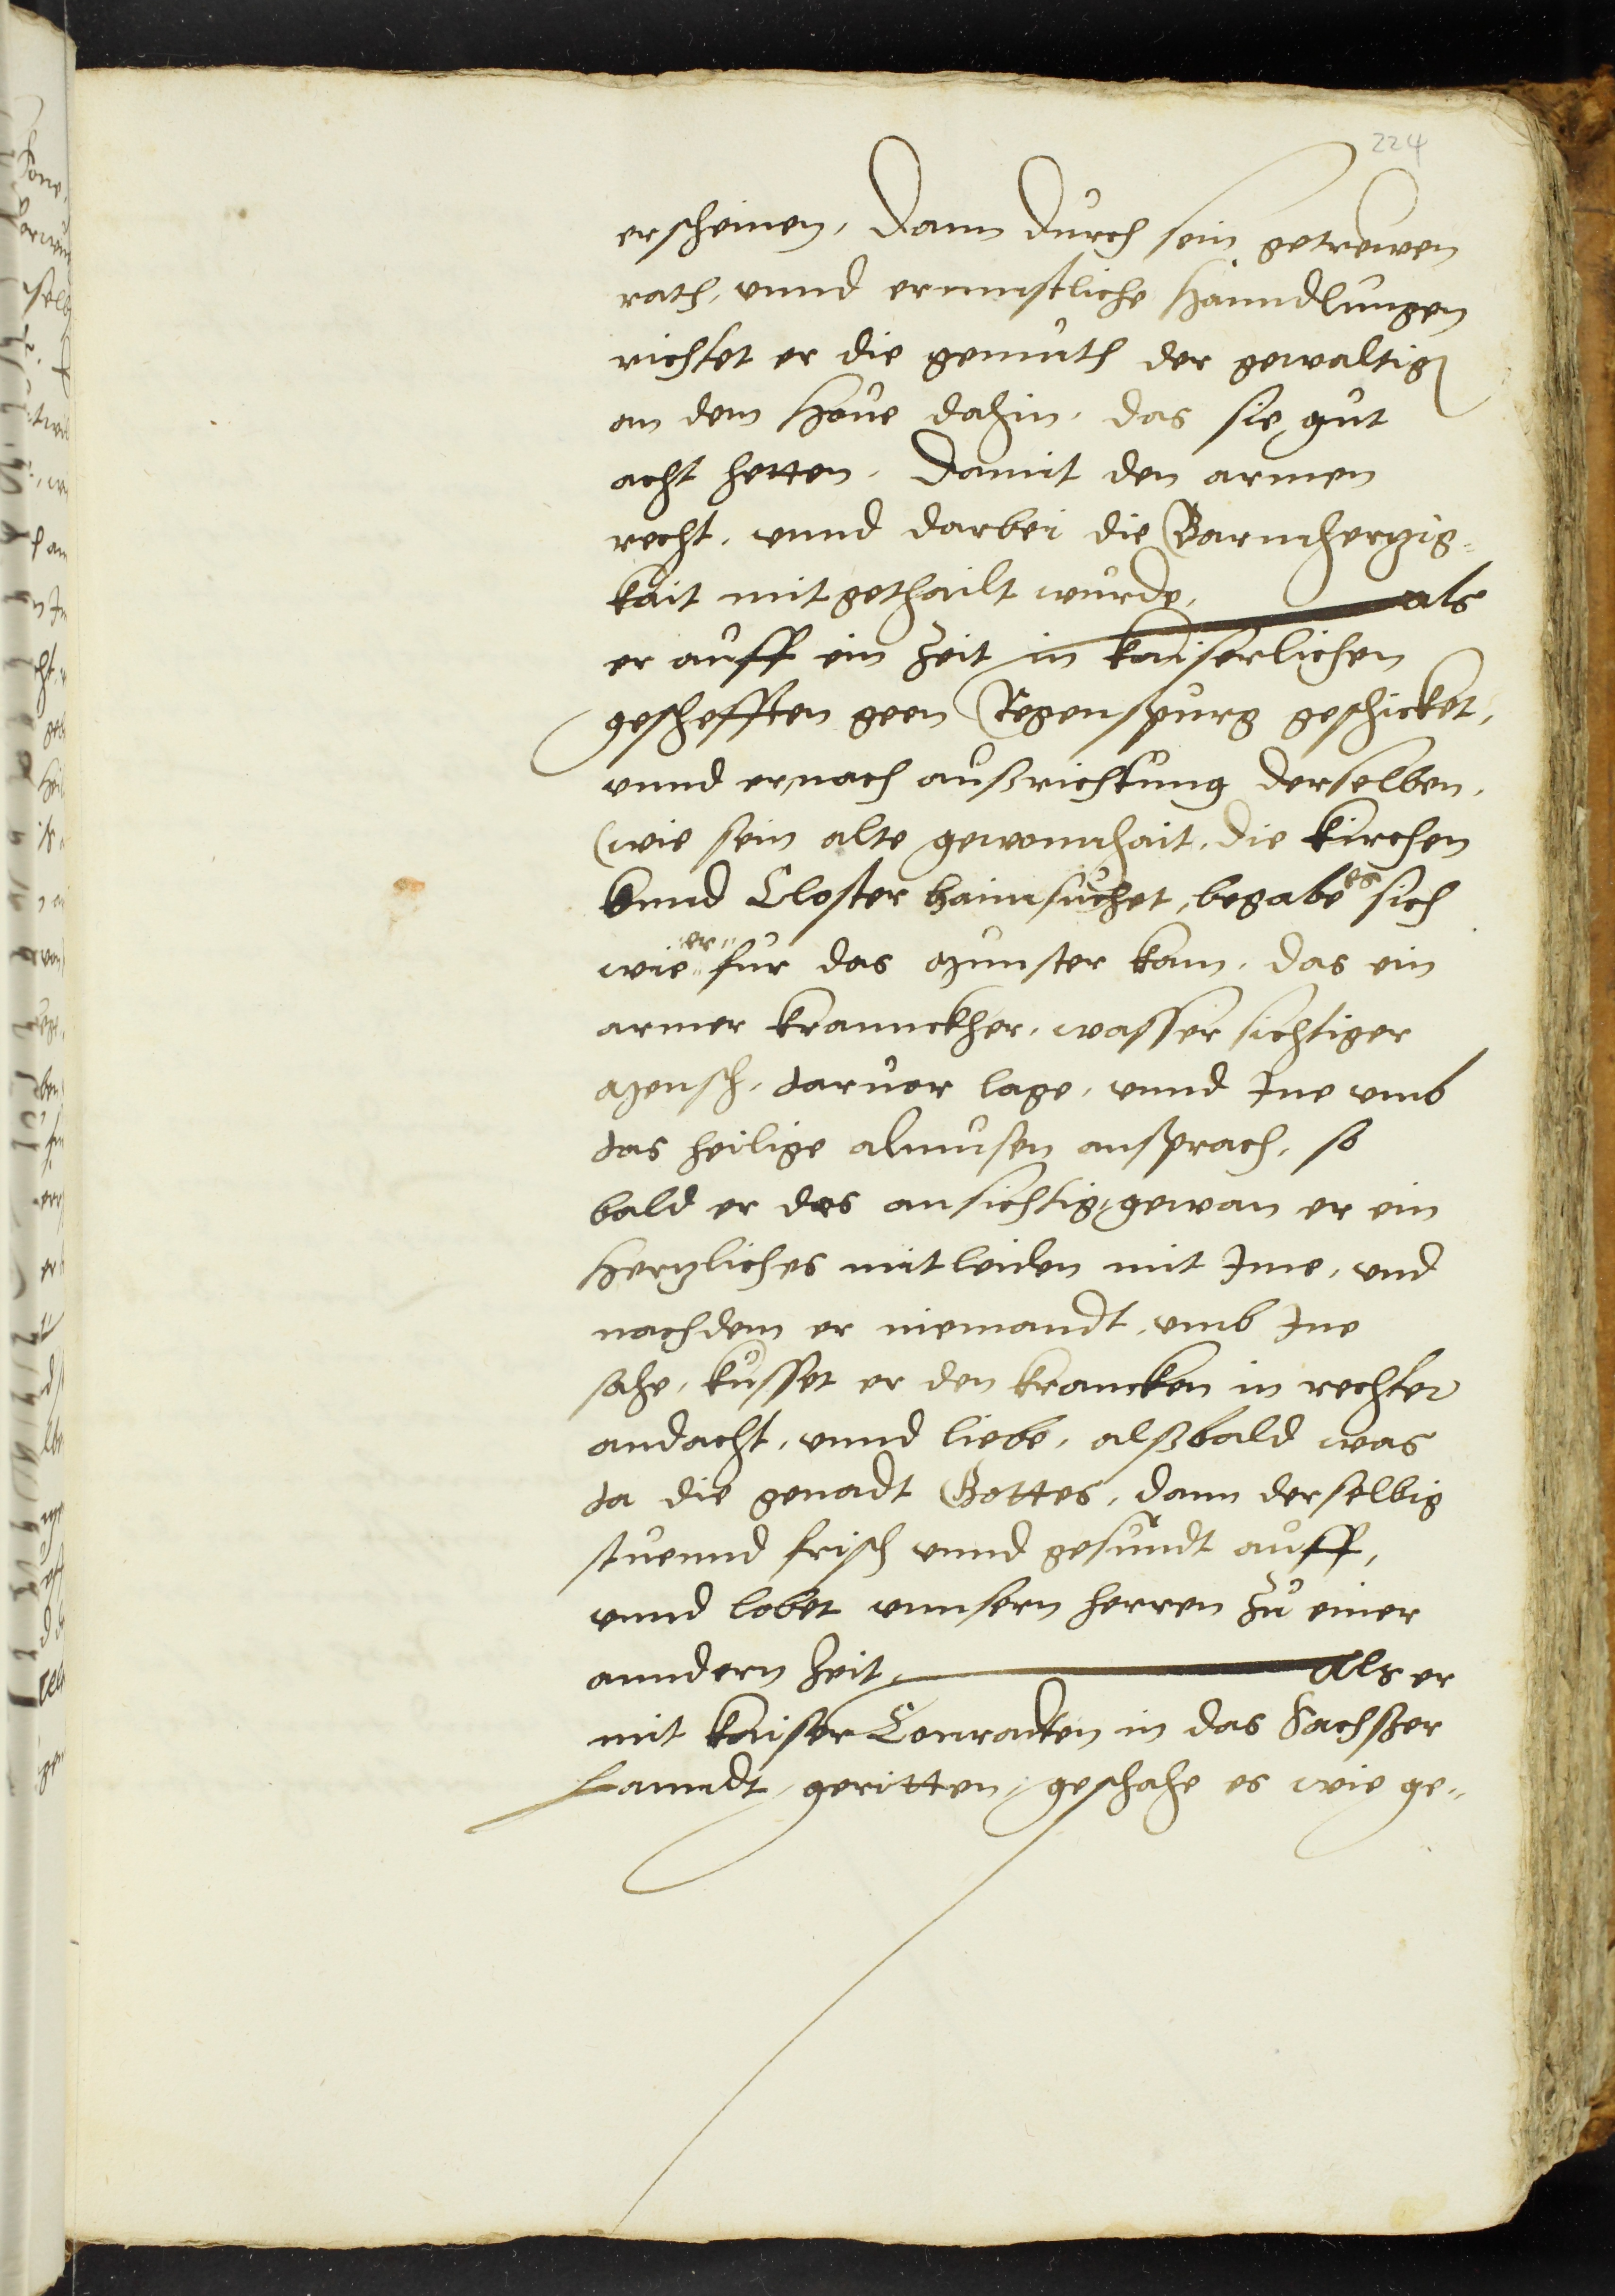 224
erscheinen, Dann durch sein getrewen
rath, vnnd ernnstliche Hanndlungen
richtet er die gemuth der gewaltig
an dem Houe dahin, das sie gut
acht hetten, Damit den armen
recht, vnnd darbei die Barmhertzig=
kait mitgethailt wurde, als
er auff ein Zeit in kaiserlichen
geschefften geen Regenspurg geschicket,
vnnd er nach außrichtung derselben,
(wie sein alte gewonnhait, die kirchen
vnnd Closter haimsuchet, begabe es sich
wie er fur das Munster kam, das ein
armer krannckher, wassersichtiger
Mensch, daruor lage, vnnd Ine vmb
das heilige almusen ansprach, so
bald er des ansichtig, gewan er ein
Hertzliches mitleiden mit Ime, vnd
nachdem er niemandt, vmb Ine
sahe, kusset er den krancken in rechter
andacht, vnnd liebe, alßbald was
da die genadt Gottes, dann derselbig
stuennd frisch vnnd gesundt auff,
vnnd lobet vnnsern herren Zu einer
anndern Zeit, Als er
mit kaiser Conradten in das Sachßer
Lanndt, geritten, geschahe es wie ge=